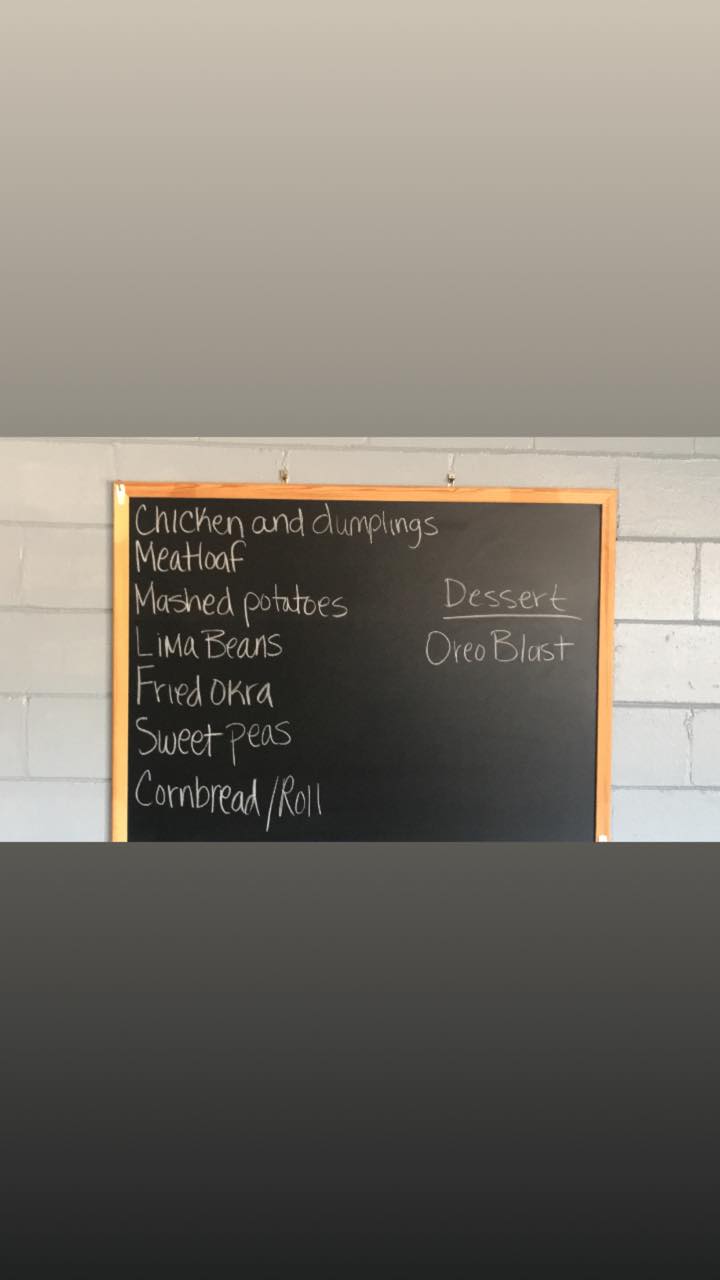 Chicken and dumplings
Meatloaf
Mashed potatoes
Lima Beans
Fried Okra
Sweet peas
Cornbread/Roll
Dessert
Oreo Blast